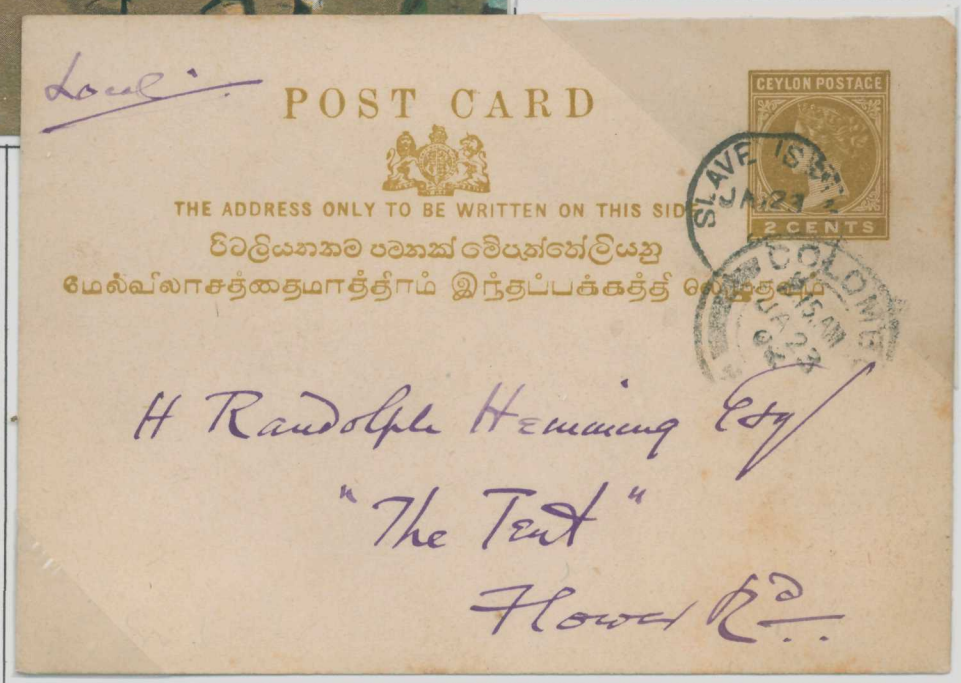 Local
POST CARD
CEYLON POSTAGE
2 CENTS
SLAVE
JA 23
THE ADDRESS ONLY TO BE WRITTEN ON THIS SID
පිටලියනකම පමනක් මේපැත්තේලියනු
மேல்விலாசத்தைமாத்திரம் இந்தப்பக்கத்தி
COLOMB
15 AM
JA 23
H Randolph Hemming Esq
"The Tent"
Flower Rd.